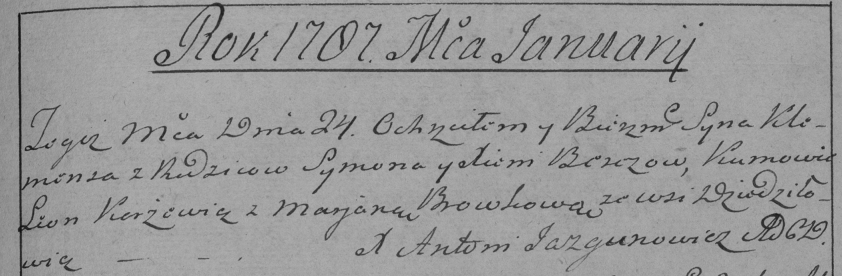 Rok 1787. Mca Januarij
Tegoż Mca Dnia 24. Ochrzciłem y Bierzm: Syna Kle-
mensa z Rodzicow Symona y Xieni Beszow, Kumowie
Leon Karżewicz z Marjaną Browkową ze wsi Dziedziło-
wicz — — . X Antoni Jazgunowicz